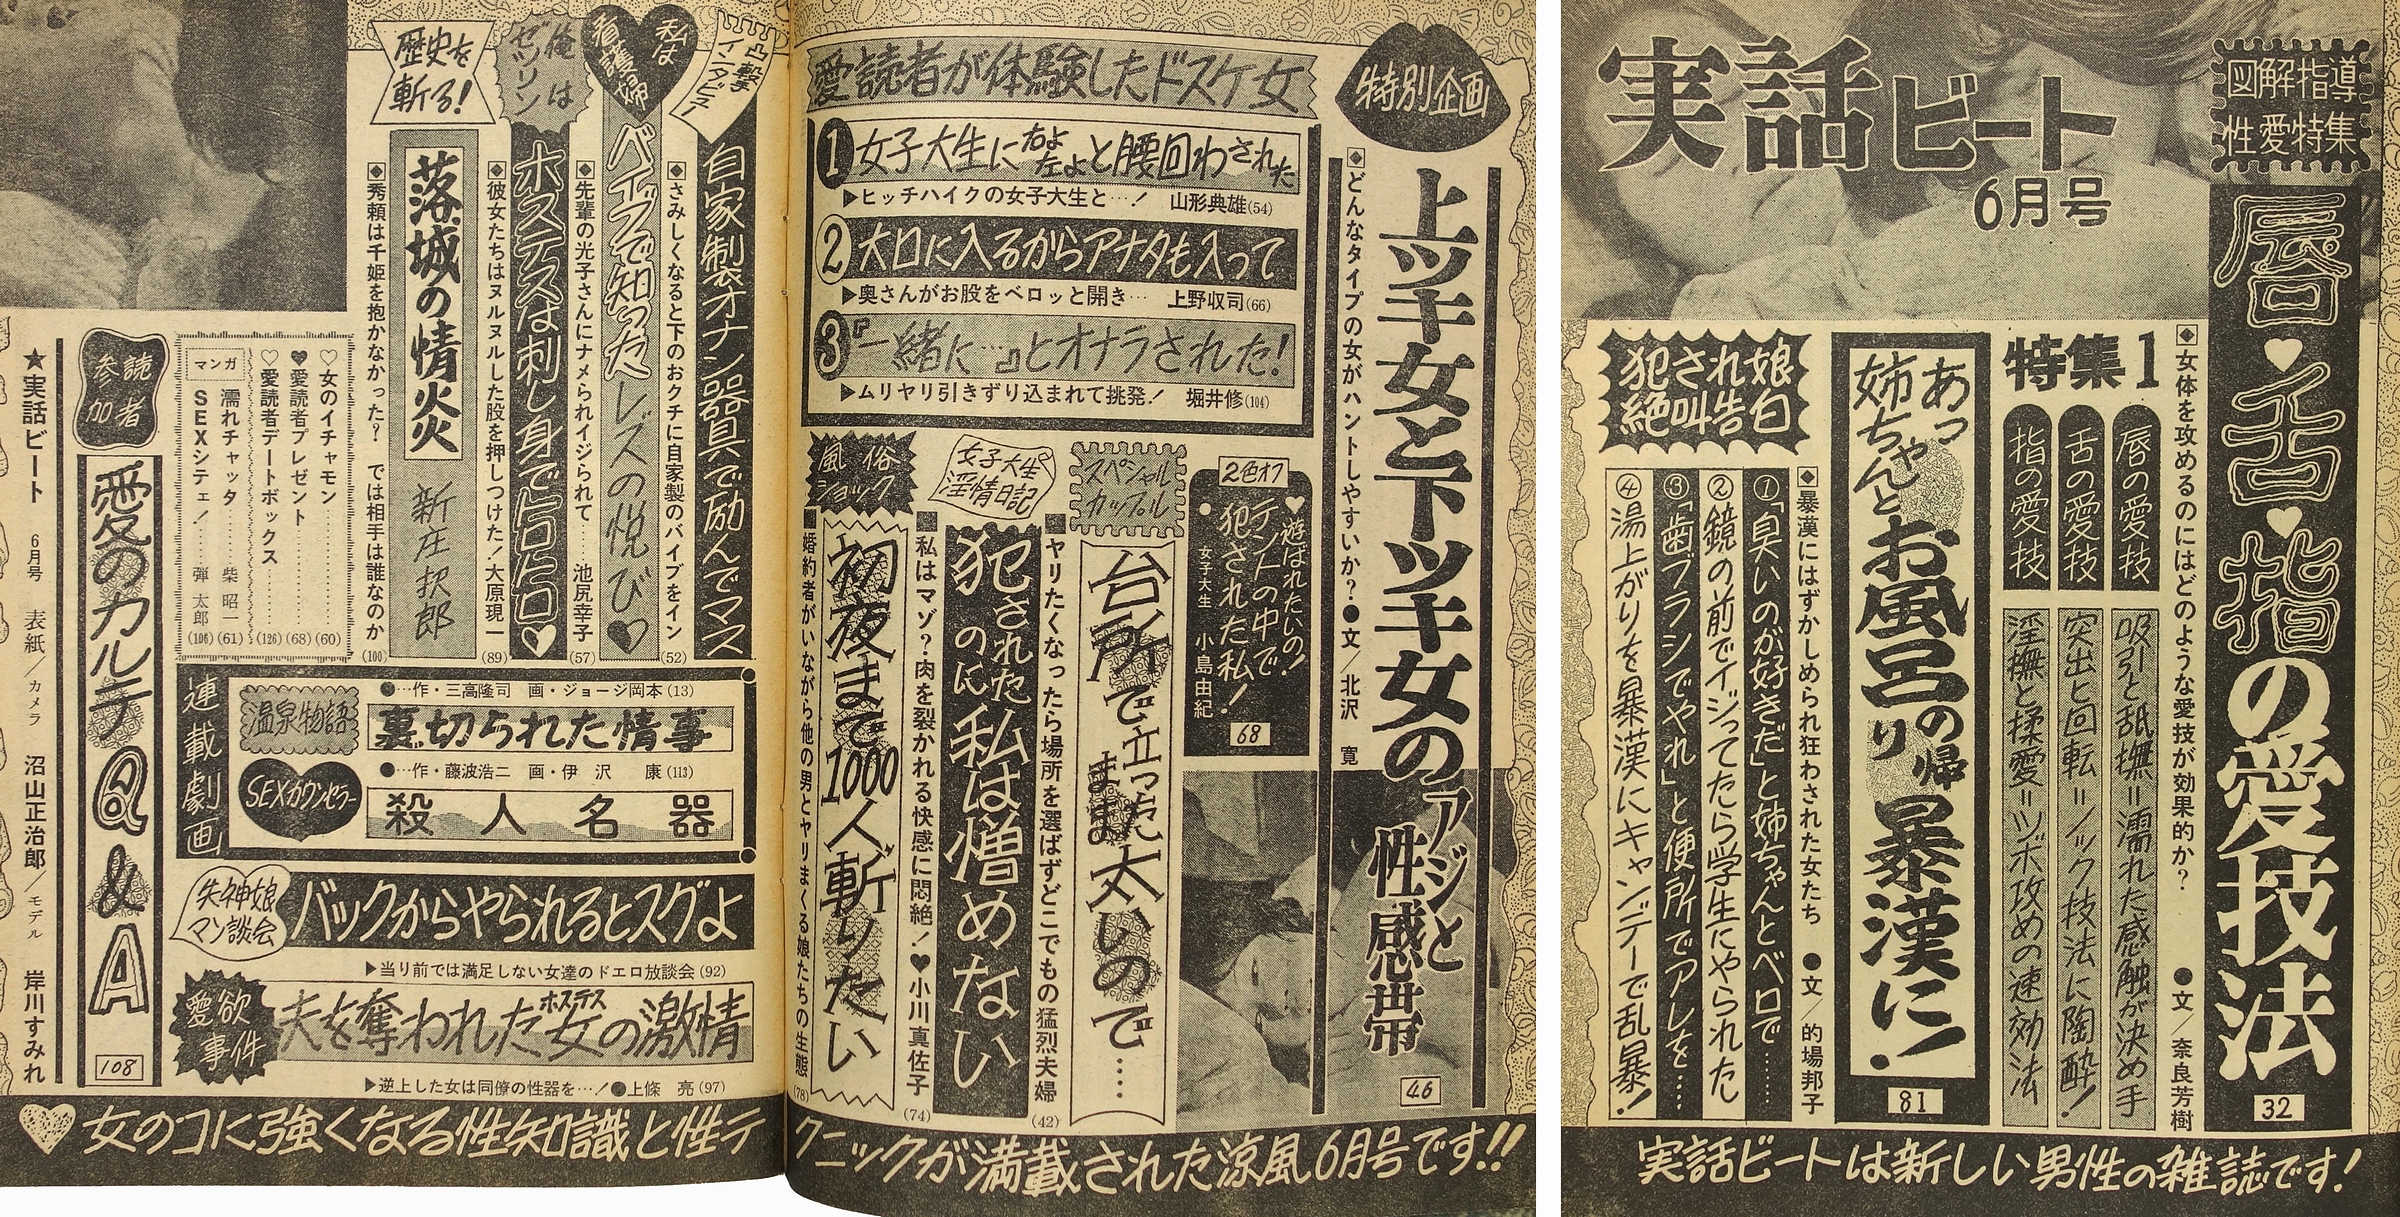 実話ビート
6月号
図解指導
性愛特集
唇♥舌♥指の愛技法
32
◆女体を攻めるのにはどのような愛技が効果的か? ●文/奈良芳樹
特集1
唇の愛技
吸引と舐撫=濡れた感触が決め手
舌の愛技
突出と回転=ノック技法に陶酔!
指の愛技
淫撫と揉愛=ツボ攻めの速効法
あっ姉ちゃんとお風呂の帰り暴漢に!
81
犯され娘
絶叫告白
◆暴漢にはずかしめられ狂わされた女たち ●文/的場邦子
①「臭いのが好きだ」と姉ちゃんとベロで……
②鏡の前でイジってたら学生にやられた
③「歯ブラシでやれ」と便所でアレを……
④湯上がりを暴漢にキャンデーで乱暴!
実話ビートは新しい男性の雑誌です!
特別企画
上ツキ女と下ツキ女のアジと性感帯
46
◆どんなタイプの女がハントしやすいか?●文/北沢 寛
愛読者が体験したドスケ女
①女子大生に右よ左よと腰回わされた
▶ヒッチハイクの女子大生と…! 山形典雄(54)
②大口に入るからアナタも入って
▶奥さんがお股をベロッと開き… 上野収司(66)
③『一緒に…』とオナラされた!
▶ムリヤリ引きずり込まれて挑発! 堀井修(104)
2色オフ
♥遊ばれたいの!
テントの中で犯された私!
●女子大生 小島由紀
68
スペシャルカップル
台所で立ったまま太いので……
■ヤリたくなったら場所を選ばずどこでもの猛烈夫婦(42)
女子大生淫情日記
犯されたのに私は憎めない
■私はマゾ?肉を裂かれる快感に悶絶!♥小川真佐子(74)
風俗ショック
初夜まで1000人斬りたい
■婚約者がいながら他の男とヤリまくる娘たちの生態(78)
突撃インタビュー
自家製オナニ器具で励んでマス
◆さみしくなると下のおクチに自家製のバイブをイン(52)
私は看護婦
バイブで知ったレズの悦び♥
◆先輩の光子さんにナメられイジられて…… 池尻幸子(57)
俺はゼツリン
ホステスは刺し身でニロニロ♥
◆彼女たちはヌルヌルした股を押しつけた!大原現一(89)
歴史を斬る!
落城の情炎 新庄択郎
◆秀頼は千姫を抱かなかった? では相手は誰なのか(100)
♡女のイチャモン……(60)
♥愛読者プレゼント……(68)
♡愛読者デートボックス……(126)
マンガ
濡れチャッタ…… 柴 昭一(61)
SEXシテェ!…… 弾 太郎(106)
連載劇画
●…作・三高隆司 画・ジョージ岡本(13)
温泉物語
裏切られた情事
●…作・藤波浩二 画・伊沢 康(113)
SEXカウンセラー
殺人名器
失神娘マン談会
バックからやられるとスグよ
▶当り前では満足しない女達のドエロ放談会(92)
愛欲事件
夫を奪われた女の激情
ホステス
▶逆上した女は同僚の性器を…!●上條 亮(97)
読者参加
愛のカルテQ&A
108
★実話ビート 6月号 表紙/カメラ 沼山正治郎/モデル 岸川すみれ
♥女のコに強くなる性知識と性テクニックが満載された涼風6月号です!!